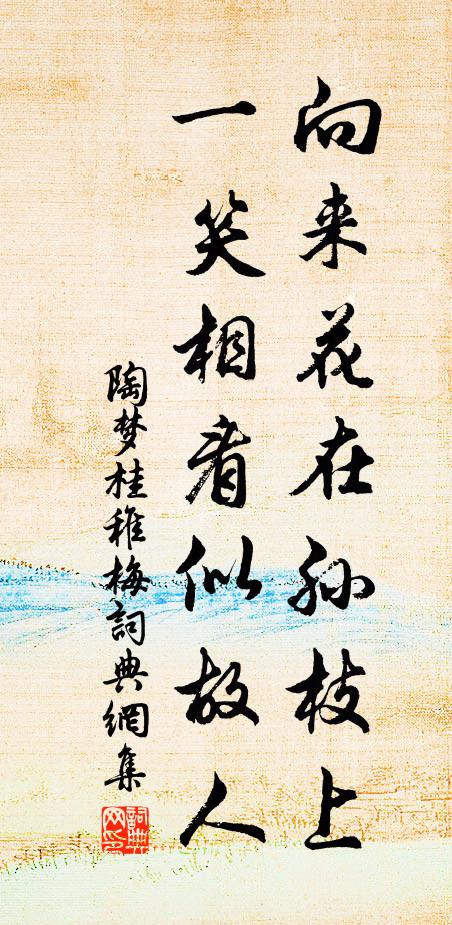 向来花在孙枝上
一笑相看似故人
陶梦桂稚梅詞典網集
詞典网印